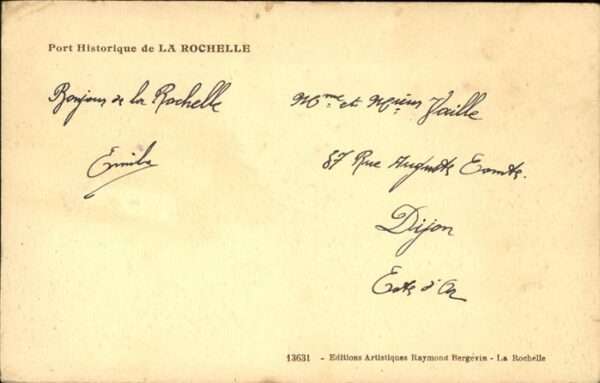 Port Historique de LA ROCHELLE
Bonjour de la Rochelle
Emile
Mme et Mr
87 Rue Auguste Comte.
Dijon
Cote d'Or
13631 - Editions Artistiques Raymond Bergevin - La Rochelle